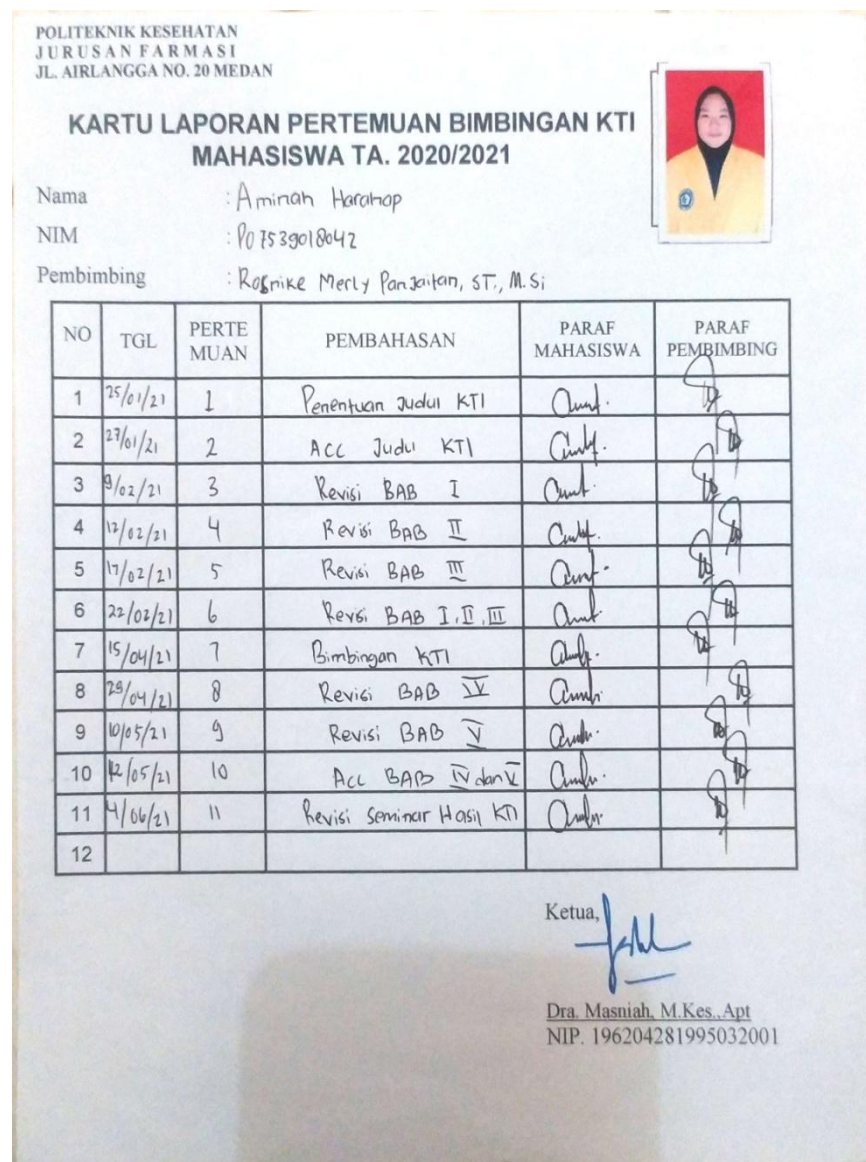 POLITEKNIK KESEHATAN
JURUSAN FARMASI
JL. AIRLANGGA NO. 20 MEDAN
KARTU LAPORAN PERTEMUAN BIMBINGAN KTI
MAHASISWA TA. 2020/2021
Nama : Aminah Harahap
NIM : P07539018042
Pembimbing : Rosnike Merly Panjaitan, ST., M.Si
NO TGL PERTE MUAN PEMBAHASAN PARAF MAHASISWA PARAF PEMBIMBING
1 25/01/21 1 Penentuan Judul KTI
2 27/01/21 2 Acc Judul KTI
3 9/02/21 3 Revisi BAB I
4 12/02/21 4 Revisi BAB II
5 17/02/21 5 Revisi BAB III
6 22/02/21 6 Revisi BAB I, II, III
7 15/04/21 7 Bimbingan KTI
8 29/04/21 8 Revisi BAB IV
9 10/05/21 9 Revisi BAB V
10 12/05/21 10 Acc BAB IV dan V
11 4/06/21 11 Revisi Seminar Hasil KTI
12
Ketua,
Dra. Masniah, M.Kes.,Apt
NIP. 196204281995032001